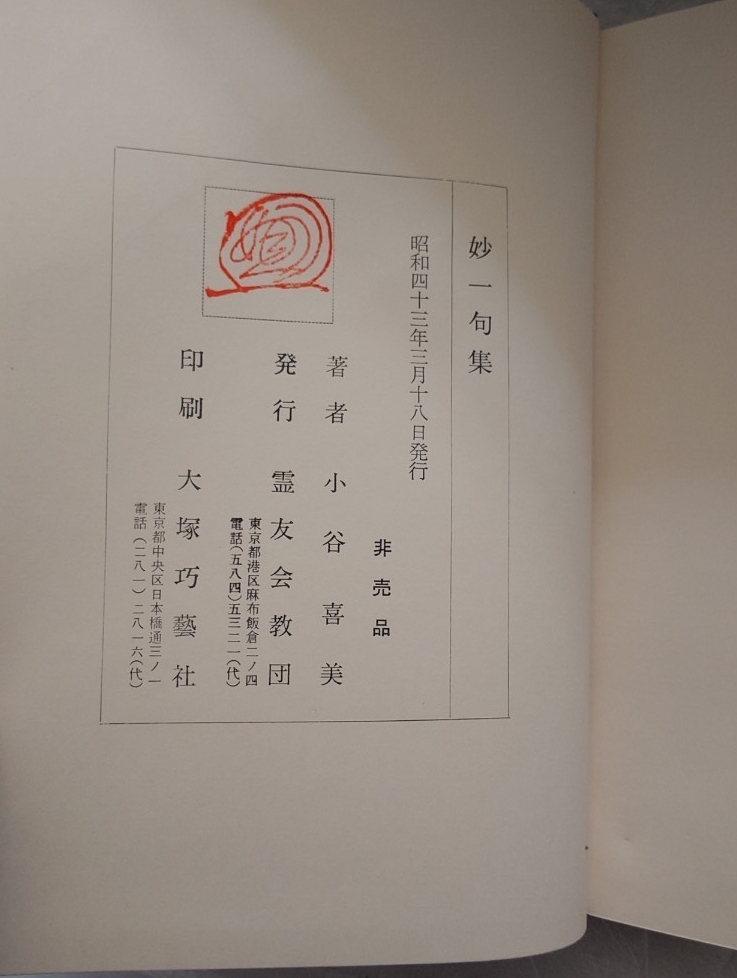 妙一句集
昭和四十三年三月十八日発行
非売品
著者 小谷喜美
発行 霊友会教団
東京都港区麻布飯倉二ノ四
電話(五八四)五三二一(代)
印刷 大塚巧藝社
東京都中央区日本橋通三ノ一
電話(二八一)二八一六(代)